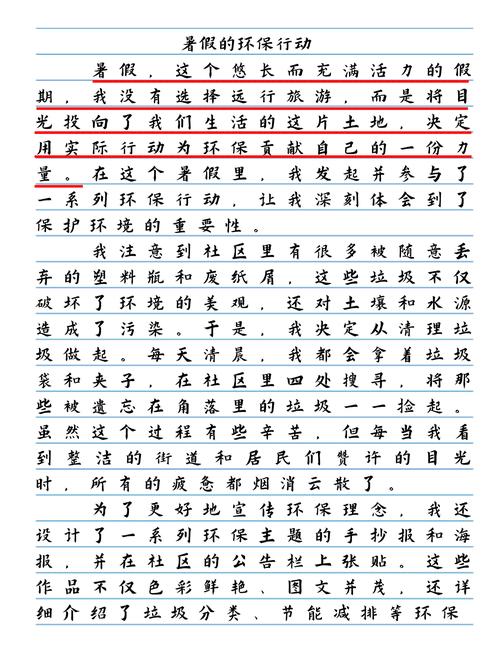 暑假的环保行动
暑假，这个悠长而充满活力的假
期，我没有选择远行旅游，而是将目
光投向了我们生活的这片土地，决定
用实际行动为环保贡献自己的一份力
量。在这个暑假里，我发起并参与了
一系列环保行动，让我深刻体会到了
保护环境的重要性。
我注意到社区里有很多被随意丢
弃的塑料瓶和废纸屑，这些垃圾不仅
破坏了环境的美观，还对土壤和水源
造成了污染。于是，我决定从清理垃
圾做起。每天清晨，我都会拿着垃圾
袋和夹子，在社区里四处搜寻，将那
些被遗忘在角落里的垃圾一一捡起。
虽然这个过程有些辛苦，但每当我看
到整洁的街道和居民们赞许的目光
时，所有的疲惫都烟消云散了。
为了更好地宣传环保理念，我还
设计了一系列环保主题的手抄报和海
报，并在社区的公告栏上张贴。这些
作品不仅色彩鲜艳、图文并茂，还详
细介绍了垃圾分类、节能减排等环保